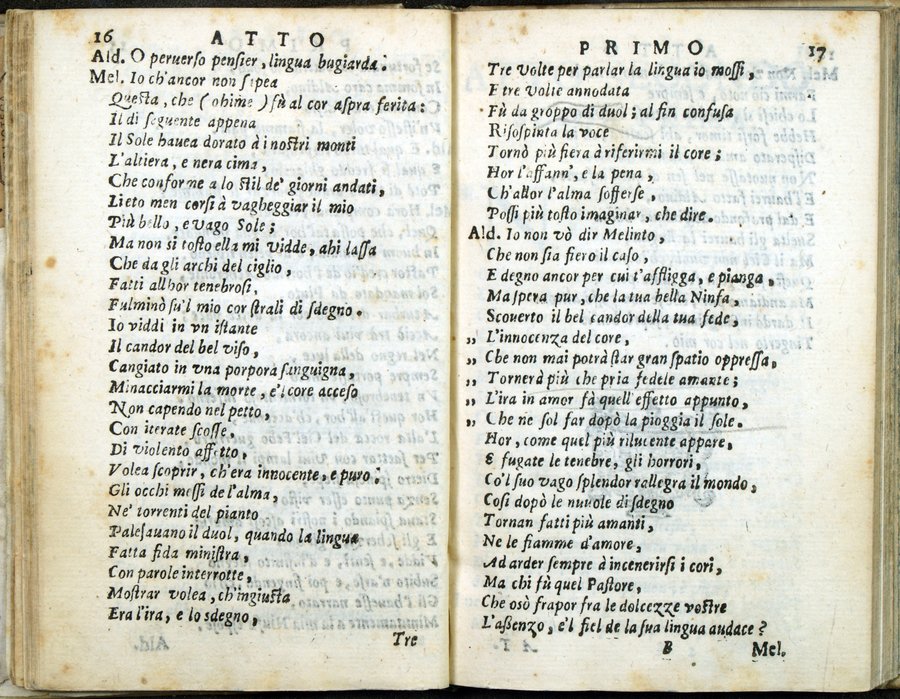 16 ATTO
Ald. O peruerso pensier, lingua bugiarda.
Mel. Io ch'ancor non sapea
Questa, che (ohime) fù al cor aspra ferita:
Il di seguente appena
Il Sole hauea dorato à i nostri monti
L'altiera, e nera cima,
Che conforme a lo stil de' giorni andati,
Lieto men corsi à vagheggiar il mio
Più bello, e vago Sole;
Ma non si tosto ella mi vidde, ahi lassa
Che da gli archi del ciglio,
Fatti allhor tenebrosi,
Fulminò su'l mio cor strali di sdegno.
Io viddi in vn istante
Il candor del bel viso,
Cangiato in vna porpora sanguigna,
Minacciarmi la morte, e'l core acceso
Non capendo nel petto,
Con iterate scosse,
Di violento affetto,
Volea scoprir, ch'era innocente, e puro:
Gli occhi messi de l'alma,
Ne' torrenti del pianto
Palesauano il duol, quando la lingua
Fatta fida ministra,
Con parole interrotte,
Mostrar volea, ch'ingiusta
Era l'ira, e lo sdegno,
Tre
PRIMO 17
Tre volte per parlar la lingua io mossi,
E tre volte annodata
Fù da groppo di duol; al fin confusa
Risospinta la voce
Tornò più fiera à riferirmi il core;
Hor l'affann', e la pena,
Ch'allor l'alma sofferse,
Possi più tosto imaginar, che dire.
Ald. Io non vò dir Melinto,
Che non sia fiero il caso,
E degno ancor per cui t'affligga, e pianga,
Ma spera pur, che la tua bella Ninfa,
Scouerto il bel candor della tua fede,
„ L'innocenza del core,
„ Che non mai potrà star gran spatio oppressa,
„ Tornerà più che pria fedele amante;
„ L'ira in amor fà quell'effetto appunto,
„ Che ne sol far dopò la pioggia il sole.
Hor, come quel più rilucente appare,
E fugate le tenebre, gli horrori,
Co'l suo vago splendor rallegra il mondo,
Cosi dopò le nuuole di sdegno
Tornan fatti più amanti,
Ne le fiamme d'amore,
Ad arder sempre à incenerirsi i cori,
Ma chi fù quel Pastore,
Che osò frapor fra le dolcezze vostre
L'assenzo, e'l fiel de la sua lingua audace?
B Mel.